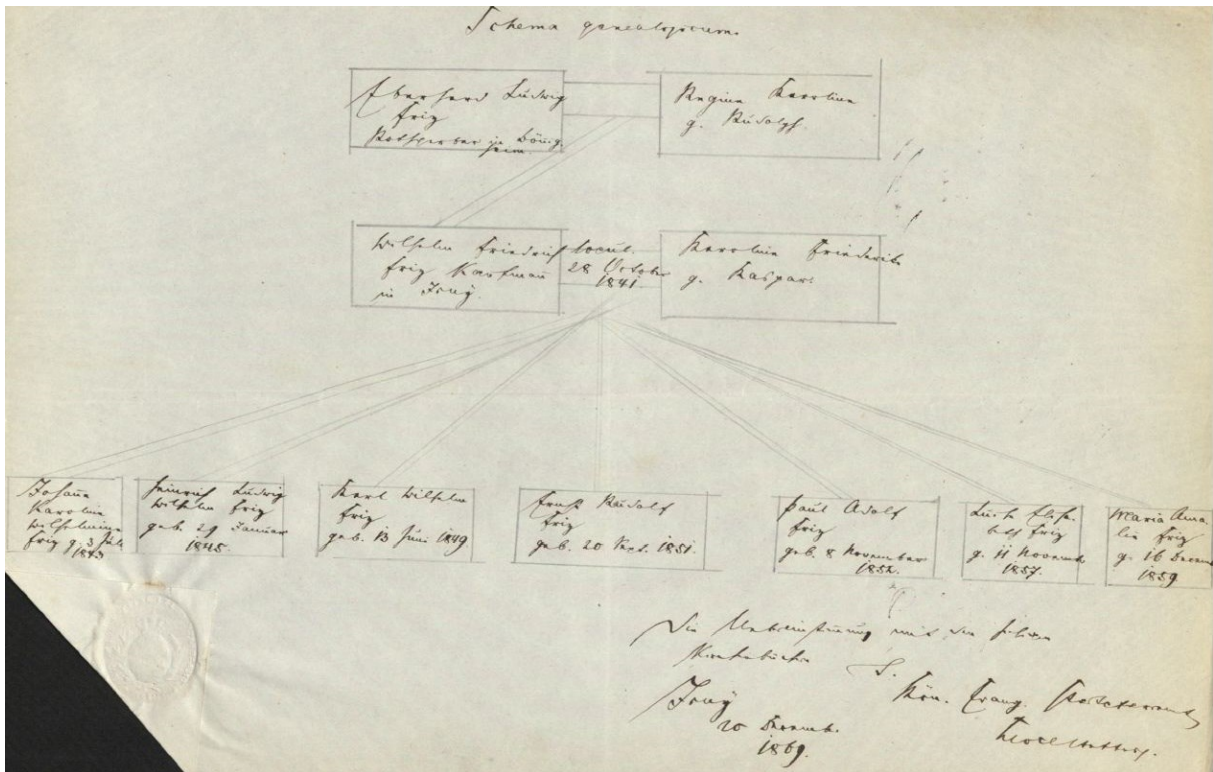 Schema genealogicum
Eberhard Ludwig
Friz
in Bönig-
heim.
Regine Karoline
g. Rudolph.
Wilhelm Friedrich
Friz Kaufman
in Isny.
copul.
28 October
1841.
Karoline Friederike
g. Kaspar.
Johanna
Karoline
Wilhelmine
Friz g. 3 Juli
1843
Heinrich Ludwig
Wilhelm Friz
geb. 29 Januar
1845.
Karl Wilhelm
Friz
geb. 13 Juni 1849
Ernst Rudolf
Friz
geb. 20 Sept. 1851.
Paul Adolf
Friz
geb. 8 November
1852.
Elisa-
beth Friz
g. 11 Novemb.
1857.
Maria Ama-
lie Friz
g. 16 Decemb
1859
Die Uebereinstimmung mit den
Kirchenbüchern
Isny
20 Decemb.
1869.
Kön. Evang.